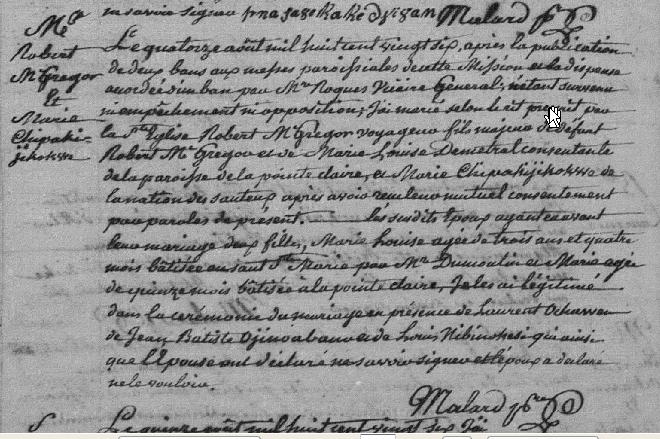 ne savoir signer
Malard ptre
Mge
Robert
McGregor
et
Marie
Chipaki-
jikok8e
Le quatorze août mil huit cent vingt six, après la publication
de deux bans aux messes paroissiales de cette Mission et la dispense
accordée d'un ban par Mr Roques Vicaire General; n'étant survenu
ni empêchement ni opposition; J'ai marié selon le rit prescrit par
la Ste Eglise Robert McGregor voyageur fils majeur de défunt
Robert McGregor et de Marie Louise Demetral consentante
de la paroisse de la pointe claire, et Marie Chipakijikok8e de
la nation des sauteux après avoir reçu leur mutuel consentement
par paroles de présent. les susdits Epoux ayant eu avant
leur mariage deux filles, Marie Louise agée de trois ans et quatre
mois bâtisée au saut Ste Marie par Mr Dumoulin et Maria agée
de quinze mois bâtisée à la pointe claire, Je les ai légitimé
dans la cérémonie du mariage en présence de Laurent
de Jean Batiste et de Louis qui ainsi
que l'Epouse ont déclaré ne savoir signer et l'époux a déclaré
ne le vouloir.
Malard ptre
Le quinze août mil huit cent vingt six J'ai